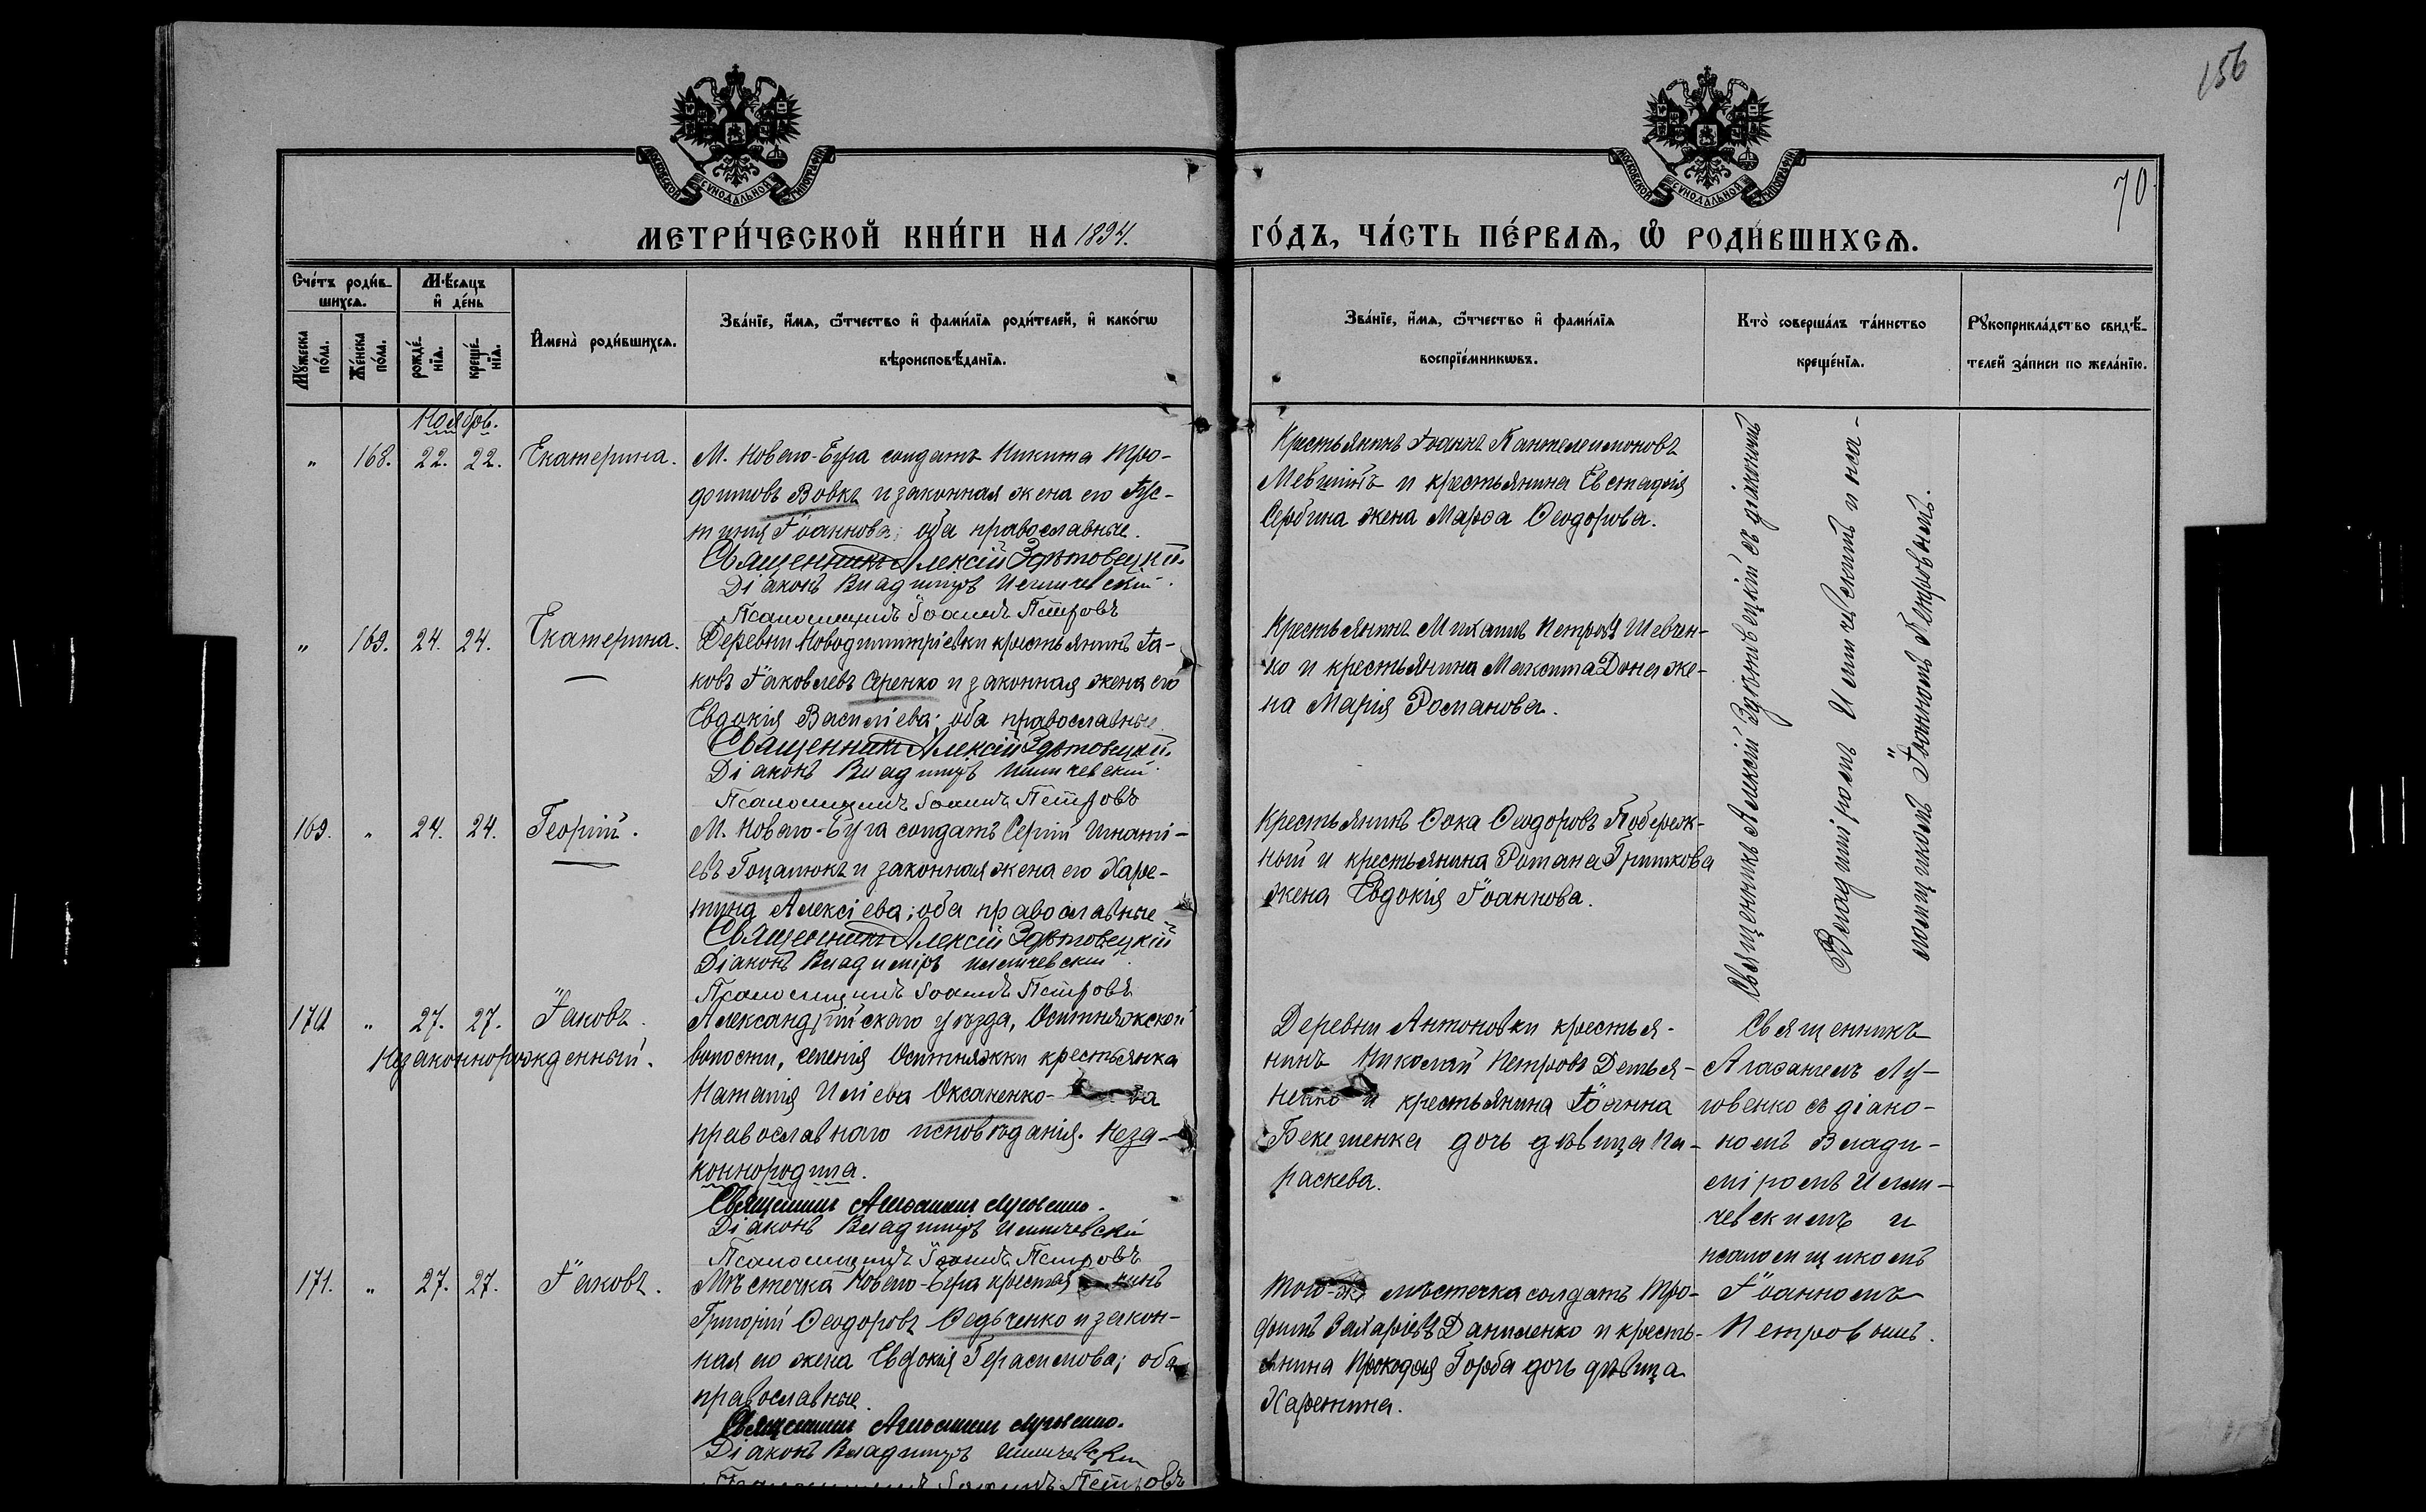 156
70
МОСКОВСКОЙ СѴНОДАЛЬНОЙ ТИПОГРАФІИ
МОСКОВСКОЙ СѴНОДАЛЬНОЙ ТИПОГРАФІИ
МЕТРИ́ЧЕСКОЙ КНИ́ГИ НА 1894.
ГО́ДЪ, ЧА́СТЬ ПЕ́РВАѦ, Ѡ РОДИ́ВШИХСѦ.
Сче́тъ роди́в-
шихсѧ.
Мꙋ́жеска по́ла.
Же́нска по́ла.
Мѣ́сѧцъ
и҆ де́нь
рожде́нїѧ.
креще́нїѧ.
И҆мена̀ роди́вшихсѧ.
Зва́нїе, и҆́мѧ, ѻ҆́тчество и҆ фами́лїѧ роди́телей, и҆ како́гѡ
вѣроисповѣ́данїѧ.
Зва́нїе, и҆́мѧ, ѻ҆́тчество и҆ фами́лїѧ
воспрїе́мникѡвъ.
Кто̀ соверша́лъ та́инство
креще́нїѧ.
Рꙋкоприкла́дство свидѣ́-
телей за́писи по жела́нїю.
Ноябрь.
" 168. 22. 22. Екатерина.
М. Новаго-Буга солдатъ Никита Тро-
фимовъ Вовкъ и законная жена его Іус-
тинія Іоаннова; оба православные.
Священникъ Алексій Здѣтовецкій.
Діаконъ Владиміръ Ильичевскій.
Псаломщикъ Іоаннъ Петровъ
Крестьянинъ Іоаннъ Пантелеимоновъ
и крестьянина Евстафія
Сербина жена Марѳа Ѳеодорова.
" 169. 24. 24. Екатерина.
Деревни Новодимитріевки крестьянинъ Іа-
ковъ Іаковлевъ Серенко и законная жена его
Евдокія Василіева; оба православные
Священникъ Алексій Здѣтовецкій.
Діаконъ Владиміръ Ильичевскій.
Псаломщикъ Іоаннъ Петровъ
Крестьянинъ Михаилъ Петровъ Шевчен-
ко и крестьянина Максима Дона же-
на Марія Романова.
169. " 24. 24. Георгій.
М. Новаго-Буга солдатъ Сергій Игнаті-
евъ Гоцалюкъ и законная жена его Харе-
тина Алексіева; оба православные.
Священникъ Алексій Здѣтовецкій
Діаконъ Владиміръ Ильичевскій
Псаломщикъ Іоаннъ Петровъ
Крестьянинъ Ѳока Ѳеодоровъ Побереж-
ный и крестьянина Романа Гришкова
жена Евдокія Іоаннова.
Священникъ Алексій Здѣтовецкій съ діакономъ
Владиміромъ Ильичевскимъ и пса-
ломщикомъ Іоанномъ Петровымъ.
170 " 27. 27. Іаковъ.
Незаконнорожденный.
Александрійскаго уѣзда, Оситняжской
волости, селенія Оситняжки крестьянка
Наталія Иліева Оксаненко-
православнаго исповѣданія. Неза-
коннородила.
Священникъ Агаѳангелъ Луговенко.
Діаконъ Владиміръ Ильичевскій
Псаломщикъ Іоаннъ Петровъ
Деревни Антоновки крестья-
нинъ Николай Петровъ Демья-
ненко и крестьянина Іоанна
Бекешенка дочь дѣвица Па-
раскева.
Священникъ
Агаѳангелъ Лу-
говенко съ діако-
номъ Влади-
міромъ Ильи-
чевскимъ и
псаломщикомъ
Іоанномъ
Петровымъ.
171. " 27. 27. Іаковъ.
Мѣстечка Новаго-Буга крестьянинъ
Григорій Ѳеодоровъ Федьченко и закон-
ная его жена Евдокія Герасимова; оба
православные.
Священникъ Агаѳангелъ Луговенко.
Діаконъ Владиміръ Ильичевскій
Псаломщикъ Іоаннъ Петровъ
Того-же мѣстечка солдатъ Тро-
фимъ Захаріевъ Даниленко и кресть-
янина Прокофія Горба дочь дѣвица
Харетина.